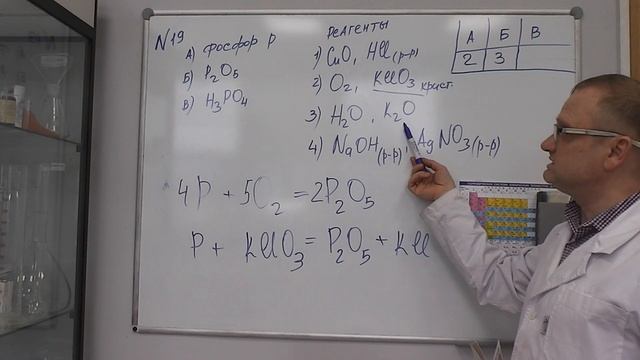 N19
А) фосфор P
Б) P2O5
В) H3PO4
Реагенты
1) CuO, HCl(р-р)
2) O2, KClO3 крист
3) H2O, K2O
4) NaOH(р-р), AgNO3(р-р)
А Б В
2 3
4P + 5O2 = 2P2O5
P + KClO3 = P2O5 + KCl